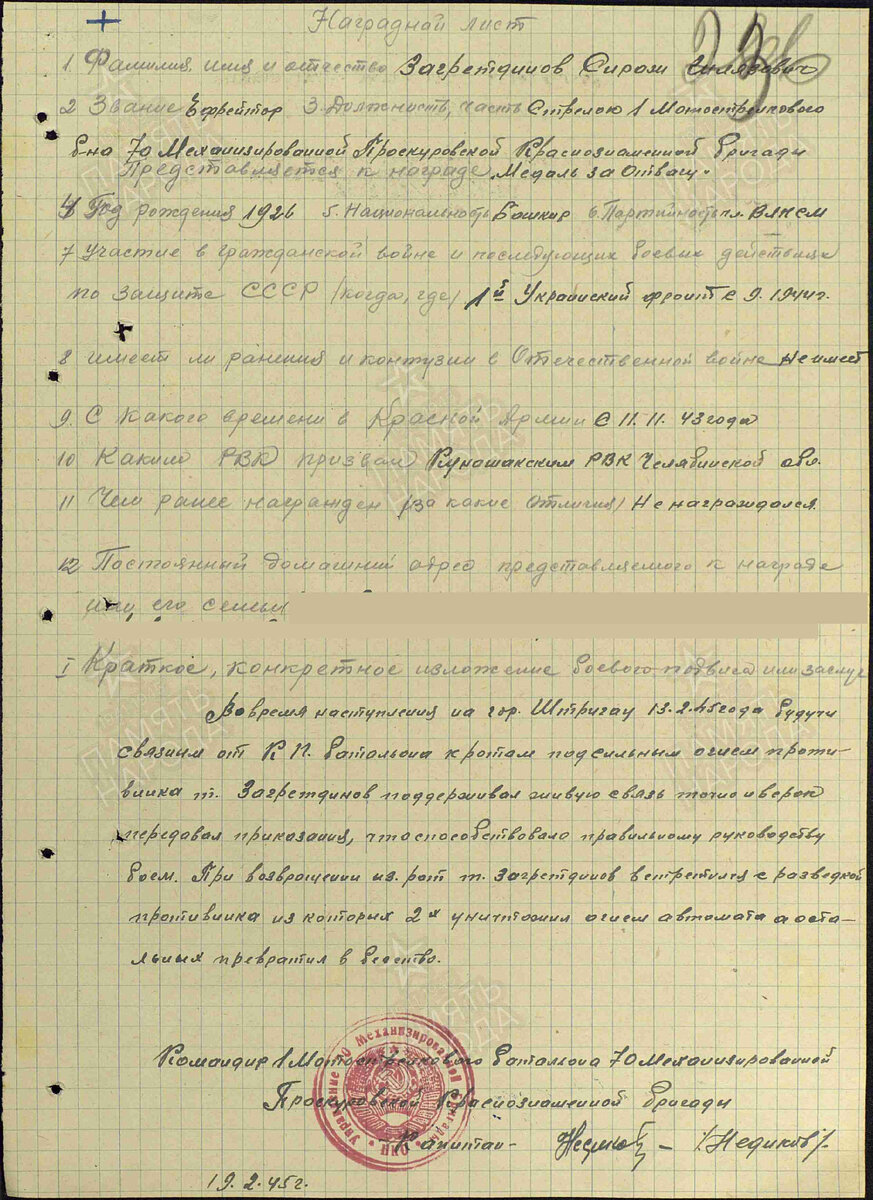 Наградной лист
1 Фамилия, имя и отчество Загретдинов Сирази
2 Звание Ефрейтор 3. Должность, часть Стрелок 1 Мотострелкового
б-на 70 Механизированной Проскуровской Краснознаменной бригады
Представляется к награде Медаль за Отвагу.
4 Год рождения 1926 5. Национальность Башкир 6. Партийность чл. ВЛКСМ
7 Участие в гражданской войне и последующих боевых действиях
по защите СССР (когда, где) 1й Украинский фронт с 9. 1944 г.
8 имеет ли ранения и контузии в Отечественной войне Не имеет
9. С какого времени в Красной Армии С 11. 11. 43 года
10 Каким РВК призван Кунашакским РВК Челябинской обл.
11 Чем ранее награжден (за какие отличия) Не награждался.
12 Постоянный домашний адрес представляемого к награде
или его семьи
I Краткое, конкретное изложение боевого подвига или заслуг
Во время наступления на гор. Штригау 13.2.45 года будучи
связным от К.П. батальона к ротам под сильным огнем проти-
вника т. Загретдинов поддерживал живую связь точно и
передавал приказания, что способствовало правильному руководству
боем. При возвращении из рот т. Загретдинов встретился с разведкой
противника из которых 2х уничтожил огнем автомата а оста-
льных превратил в бегство.
Командир 1 Мотострелкового батальона 70 Механизированной
Проскуровской Краснознаменной бригады
- Капитан - /Недиков/.
19. 2. 45 г.
Управление 70 Механизированной бригады
НКО
ПАМЯТЬ НАРОДА